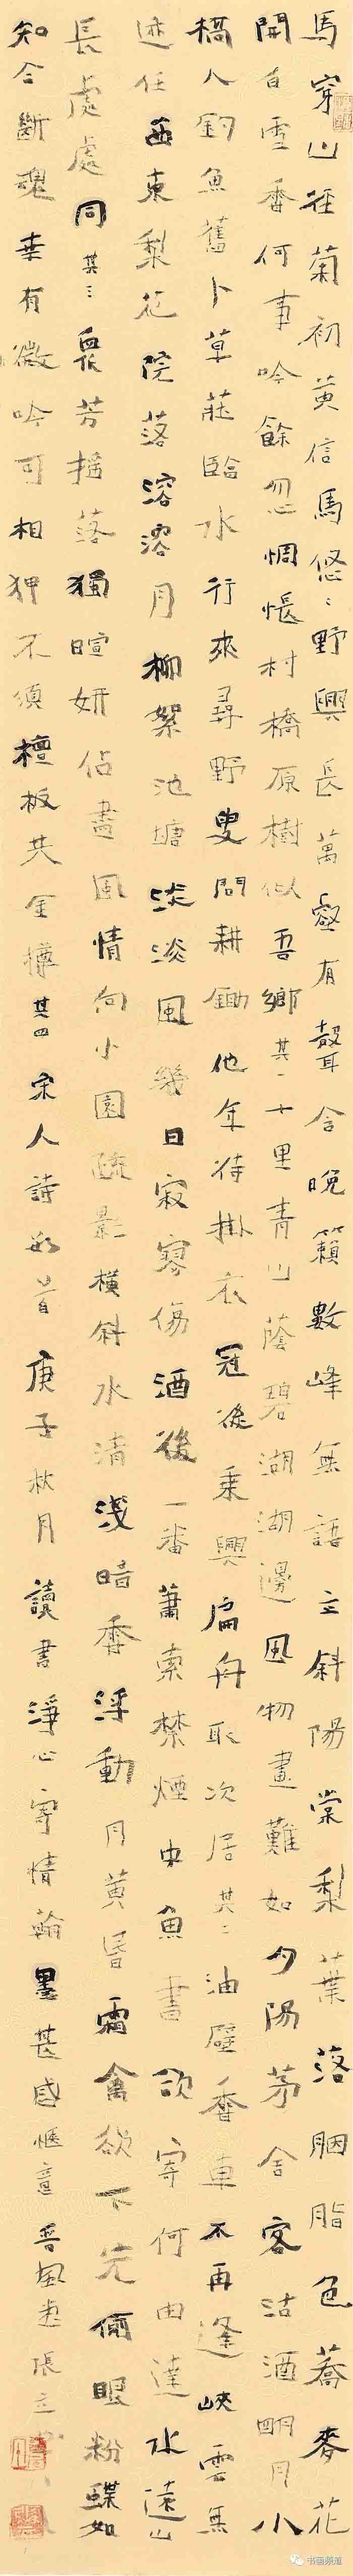 馬穿山徑菊初黃信馬悠々野興長萬壑有聲含晚籟數峰無語立斜陽棠梨葉落胭脂色蕎麥花
開白雪香何事吟餘忽惆悵村橋原樹似吾鄉其一十里青山蔭碧湖湖邊風物畫難如夕陽茅舍客沽酒明月小
橋人釣魚舊卜草莊臨水行來尋野叟問耕鋤他年待掛衣冠後乘興扁舟取次居其二油壁香車不再逢峽雲無
迹任西東梨花院落溶溶月柳絮池塘淡淡風幾日寂寥傷酒後一番蕭索禁煙中魚書欲寄何由達水遠山
長處處同其三眾芳搖落獨暄妍佔盡風情向小園疏影橫斜水清淺暗香浮動月黃昏霜禽欲下先偷眼粉蝶如
知合斷魂幸有微吟可相狎不須檀板共金樽其四宋人詩四首庚子秋月讀書淨心寄情翰墨甚感愜意晉風書張立
书画频道